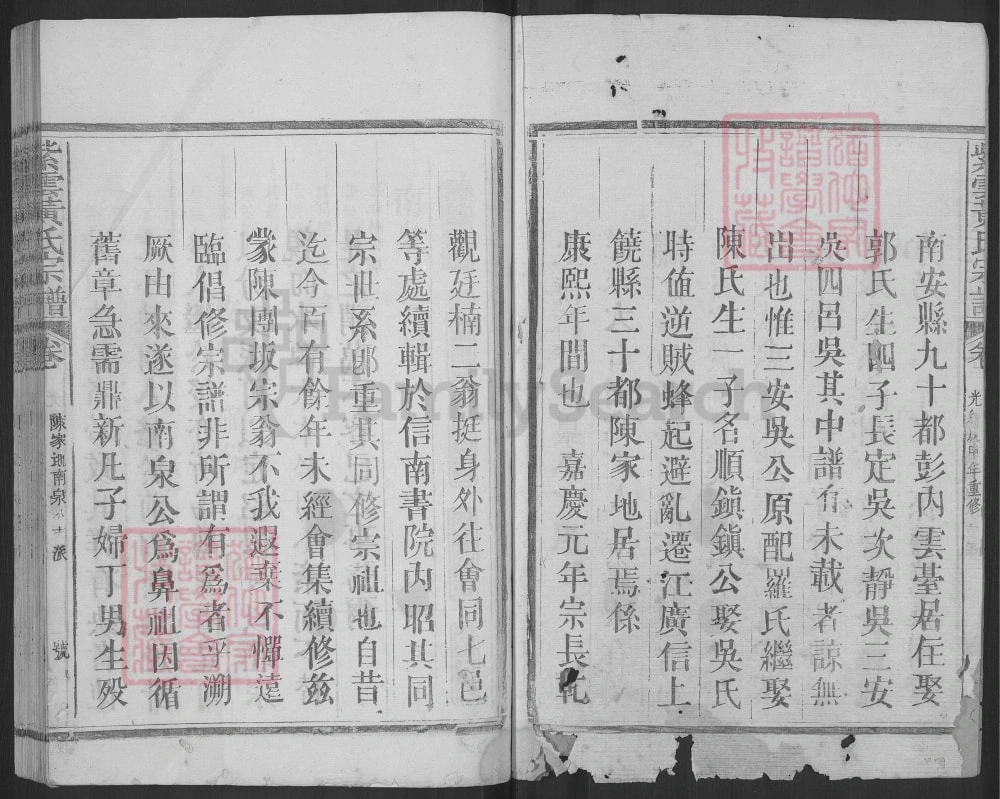 紫雲黃氏宗譜 卷
光緒 申年重修
南安縣九十都彭內雲臺居住娶
郭氏生四子長定吳次靜吳三安
吳四呂吳其中譜有未載者諒無
出也惟三安吳公原配羅氏繼娶
陳氏生一子名順鎮鎮公娶吳氏
時值逆賊蜂起避亂遷江廣信上
饒縣三十都陳家地居焉係
康熙年間也 嘉慶元年宗長乾
觀廷楠二翁挺身外往會同七邑
等處續輯於信南書院內昭其同
宗世系鄭重其同修宗祖也自昔
迄今百有餘年未經會集續修茲
蒙陳團坂宗翁不我遐棄不憚遠
臨倡修宗譜非所謂有為者乎溯
厥由來遂以南泉公為鼻祖因循
舊章急需鼎新凡子婦丁男生歿
紫雲黃氏宗譜 卷
陳家地南泉公 派 號
FamilySearch